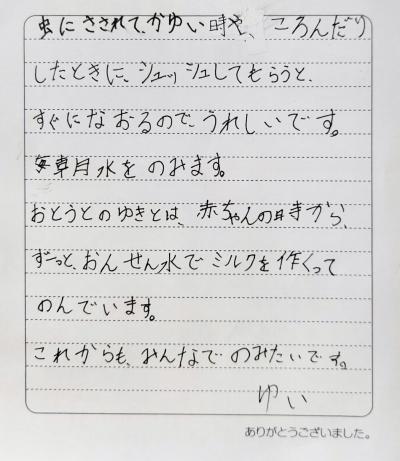 虫にさされて、かゆい時や、ころんだり
したときに、シュッシュしてもらうと、
すぐになおるので、うれしいです。
毎朝水をのみます。
おとうとのゆきとは、赤ちゃんの時から、
ずーっと、おんせん水でミルクを作くって
のんでいます。
これからも、みんなでのみたいです。
ゆい
ありがとうございました。